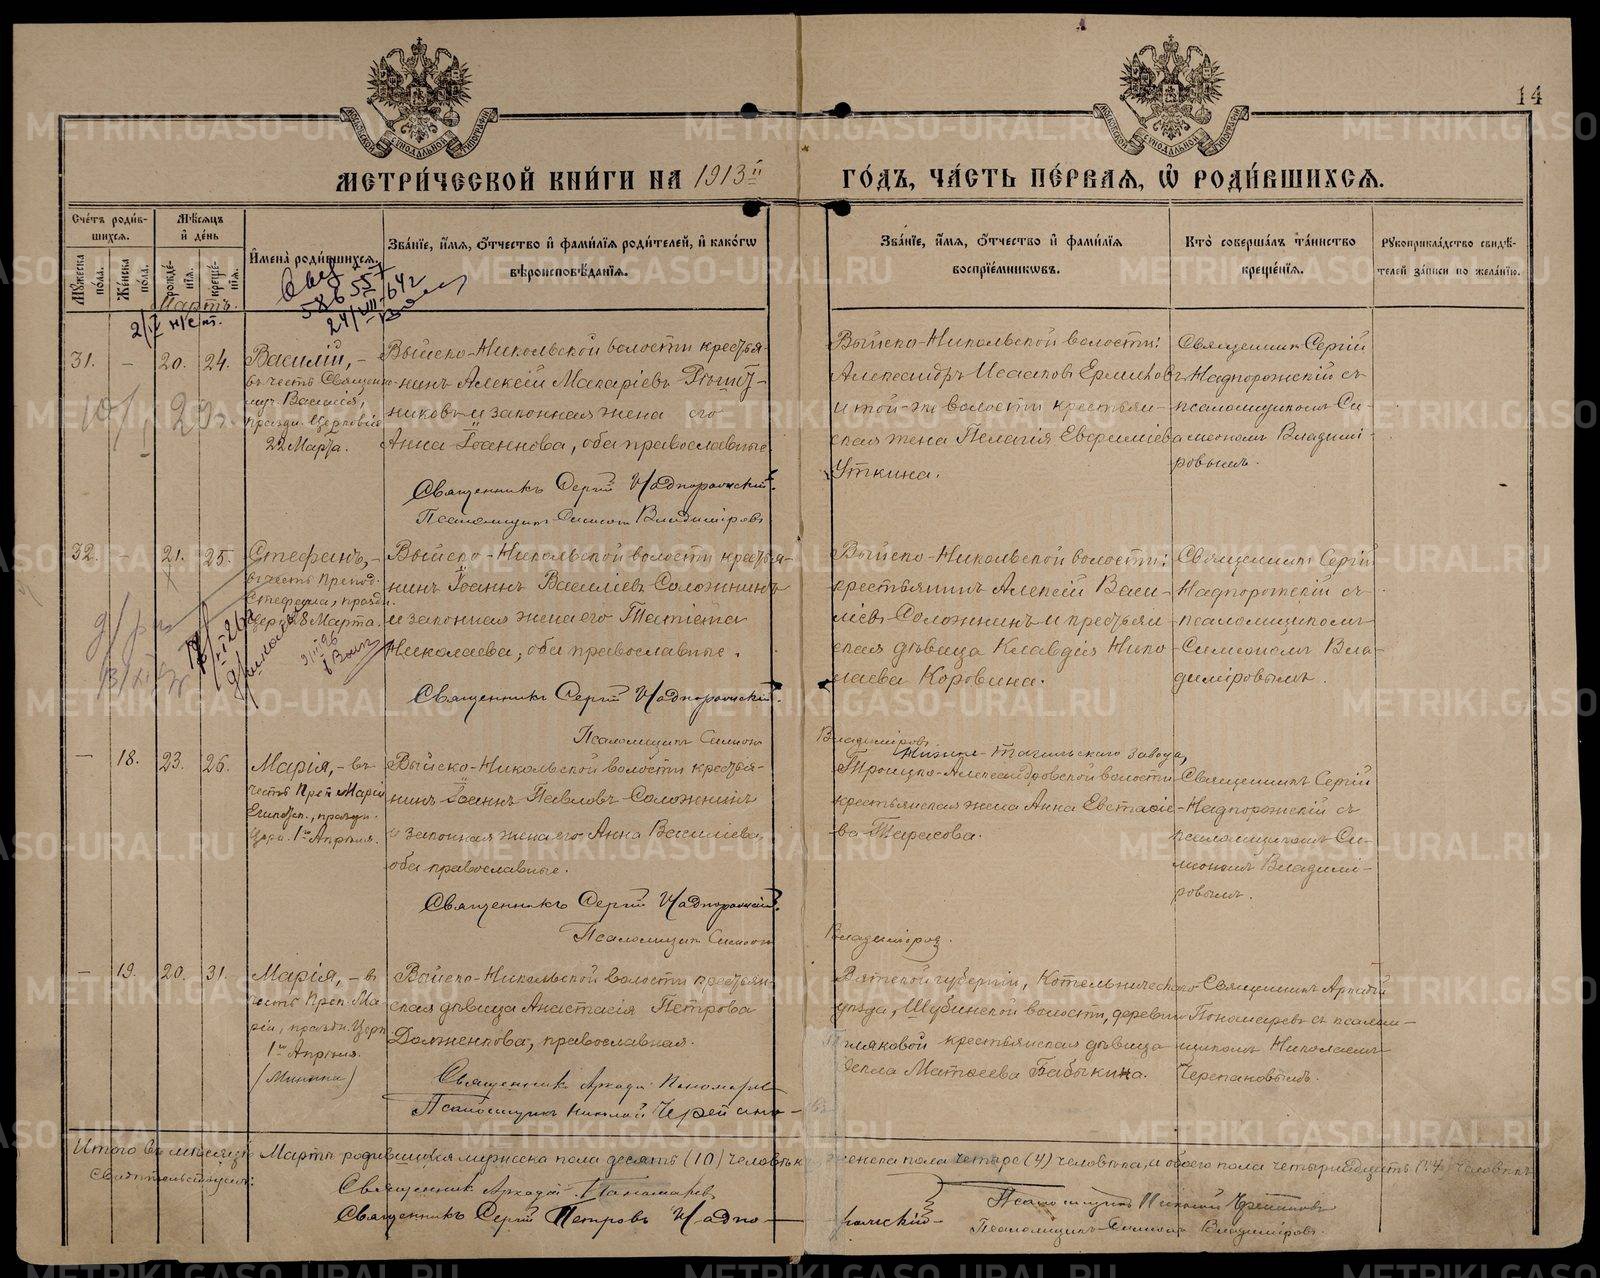 14
МЕТРИ́ЧЕСКОЙ КНИ́ГИ НА 1913й ГО́ДЪ, ЧА́СТЬ ПЕ́РВАЯ, Ѡ РОДИ́ВШИХСЯ.
Сче́тъ роди́в-
шихся.
Мꙋ́жеска пола.
Же́нска по́ла.
Мѣ́сяцъ
и҆ де́нь
рожде́нїя.
креще́нїя.
И҆мена̀ роди́вшихся.
Зва́нїе, и҆́мя, ѻ҆́тчество и҆ фами́лїя роди́телей, и҆ како́гѡ
вѣроисповѣ́данїя.
Зва́нїе, и҆́мя, ѻ҆́тчество и҆ фами́лїя
воспрїе́мниковъ.
Кто̀ соверша́лъ та́инство
креще́нїя.
Рꙋкоприкла́дство свидѣ́-
телей за́писи по жела́нїю.
Мартъ.
2/IV н/ст.
24/VIII-642
31. – 20. 24.
Василій, –
въ честь Священно-
муч. Василія,
праздн. Церковію
22 Марта.
Выйско-Никольской волости кресть-
янинъ Алексій Макаріевъ
никовъ и законная жена его
Анна Іоаннова, оба православные.
Священникъ Сергій Надпорожскій.
Псаломщикъ Симеонъ Владиміровъ
Выйско-Никольской волости:
Александръ Исааковъ Ермиковъ
и той-же волости крестьян-
ская жена Пелагія Евфиміева
Уткина.
Священникъ Сергій
Надпорожскій съ
псаломщикомъ Си-
меономъ Владимі-
ровымъ.
32. – 21. 25.
Стефанъ, –
въ честь Препод.
Стефана, праздн.
Церк. 28 Марта.
Выйско-Никольской волости крестья-
нинъ Іоаннъ Василіевъ Соложнинъ
и законная жена его Татіана
Николаева, оба православные.
Священникъ Сергій Надпорожскій.
Псаломщикъ Симеонъ Владиміровъ
Выйско-Никольской волости:
крестьянинъ Алексій Васи-
ліевъ Соложнинъ и крестьян-
ская дѣвица Клавдія Нико-
лаева Коровина.
Священникъ Сергій
Надпорожскій съ
псаломщикомъ
Симеономъ Вла-
диміровымъ.
– 18. 23. 26.
Марія, – въ
честь Преп. Маріи
Египетск., праздн.
Церк. 1го Апрѣля.
Выйско-Никольской волости крестья-
нинъ Іоаннъ Павловъ Соложнинъ
и законная жена его Анна Василіева,
оба православные.
Священникъ Сергій Надпорожскій.
Псаломщикъ Симеонъ Владиміровъ.
Нижне-Тагильскаго завода,
Троицко-Александровской волости
крестьянская жена Анна Евстафіе-
ва Тарасова.
Священникъ Сергій
Надпорожскій съ
псаломщикомъ Си-
меономъ Владимі-
ровымъ.
– 19. 20. 31.
Марія, – въ
честь Преп. Ма-
ріи, праздн. Церк.
1го Апрѣля.
Выйско-Никольской волости крестьян-
ская дѣвица Анастасія Петрова
Долженкова, православная.
Священникъ Аркадій Пономаревъ
Псаломщикъ Николай
Вятской губерніи, Котельническаго
уѣзда, Шубинской волости, деревни
крестьянская дѣвица
Текла Матѳеева Бабыкина.
Священникъ Аркадій
Пономаревъ съ псалом-
щикомъ Николаемъ
Черепановымъ.
Итого въ мѣсяцѣ Мартѣ родившихся мужеска пола десять (10) человѣкъ, женска пола четыре (4) человѣка, и обоего пола четырнадцать (14) человѣкъ
Свидѣтельствуемъ:
Священникъ Аркадій Пономаревъ
Священникъ Сергій Петровъ Надпо-
рожскій
Псаломщикъ Николай Черепановъ
Псаломщикъ Симеонъ Владиміровъ.
METRIKI.GASO-URAL.RU